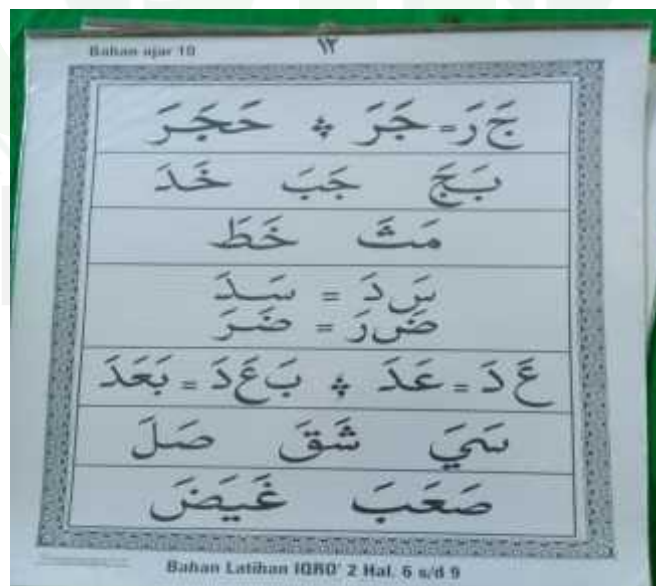 Bahan ajar 10
١٢
جَ رَ = جَرَ * حَجَرَ
بَجَ جَبَ خَدَ
مَثَ خَطَ
سَ دَ = سَدَ
ضَ رَ = ضَرَ
عَ دَ = عَدَ * بَ عَ دَ = بَعَدَ
سَيَ شَقَ صَلَ
صَعَبَ غَيَضَ
Bahan Latihan IQRO' 2 Hal. 6 s/d 9